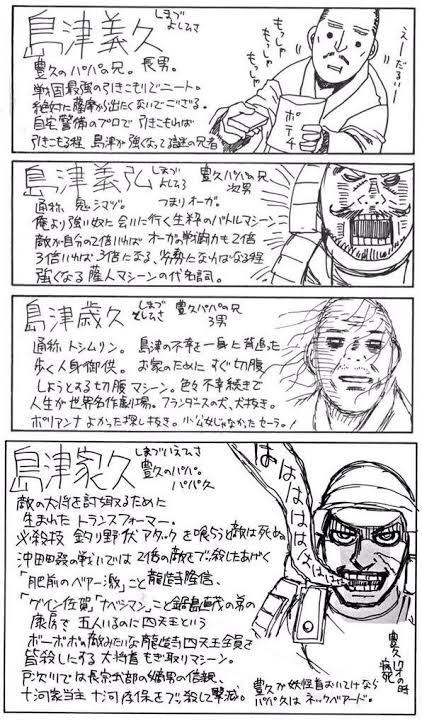 島津義久
しまづ
よしひさ
えーだるぃー
もっしゃ
もっしゃ
もっしゃ
ポテチ
豊久のパパの兄。長男。
戦国最強の引きこもりでニート。
絶対に薩摩から出たくないでござる。
自宅警備のプロで引きこもれば
引きこもる程、島津が強くなって
島津義弘
しまづ
よしひろ
豊久パパの兄
次男
通称、鬼シマヅ。つまりオーガ。
俺より強い奴に会いに行く生粋のバトルマシーン
敵が自分の2倍いれば オーガの戦闘力も2倍
3倍いれば 3倍になる、劣勢になればなる程
強くなる薩人マシーンの代名詞。
島津歳久
しまづ
としひさ
豊久パパの兄
3男
通称 トシムリン。島津の不幸を一身に背追った
歩く人身御供。お家のために すぐ切腹
しようとする切腹マシーン。色々不幸続きで
人生が世界名作劇場。フランダースの犬、犬抜き。
ポリアンナ よかった探し抜き。小公女じゃなかったセーラ!
島津家久
しまづいえひさ
豊久のパパ。
パパ久
ははははははは
敵の大将を討ち取るために
生まれた トランスフォーマー。
必殺技 釣り野伏アタックを喰らうと敵は死ぬ
沖田畷の戦いでは 2倍の敵をブッ殺したあげく
「肥前のベアー激」こと龍造寺隆信、
「グイン佐賀」「ナベシマン」こと鍋島直茂の弟の
康房で 五人いるのに四天王という
ボーボボの敵みたいな龍造寺四天王全員を
皆殺しにする 大将首もぎ取りマシーン。
戸次川では長宗我部の嫡男の信親、
十河家当主 十河存保をブッ殺して撃滅。
豊久
の時
病死
豊久が妖怪首おいてけなら
パパ久は ネックベアード。